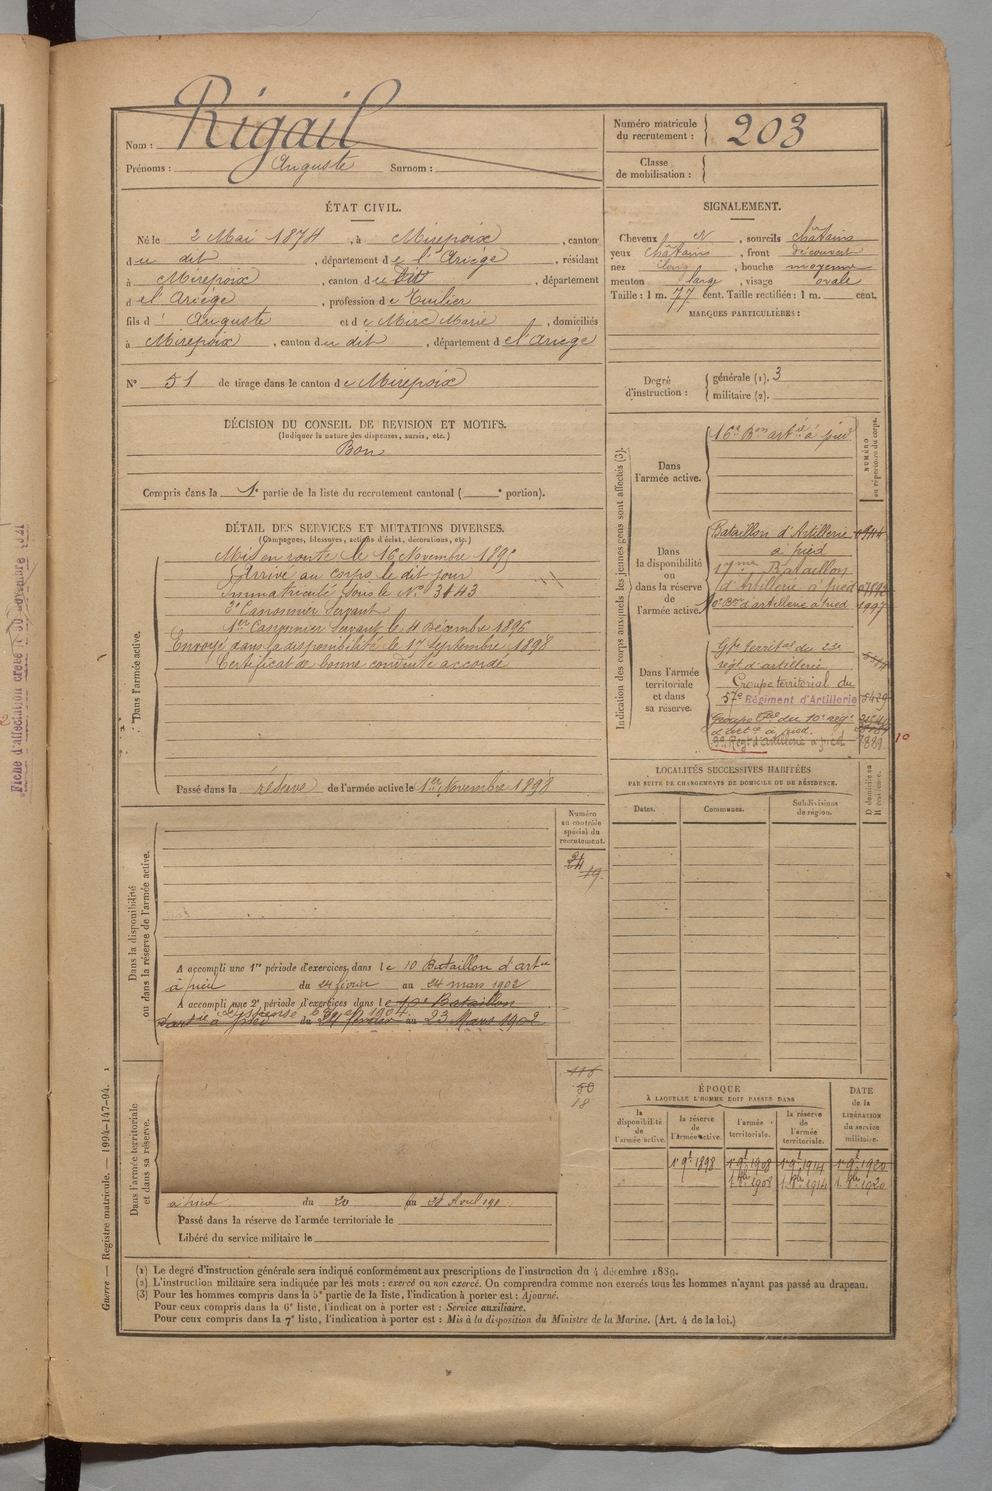 Nom : Rigail
Prénoms : Auguste Surnom :
Numéro matricule du recrutement : 203
Classe de mobilisation :
ÉTAT CIVIL.
Né le 2 Mai 1874, à Mirepoix, canton
du dit, département de l'Ariège, résidant
à Mirepoix, canton du dit, département
de l'Ariège, profession de Tuilier
fils d' Auguste et de Mirc Marie, domiciliés
à Mirepoix, canton du dit, département de l'Ariège
N° 51 de tirage dans le canton de Mirepoix
DÉCISION DU CONSEIL DE REVISION ET MOTIFS.
(Indiquer la nature des dispenses, sursis, etc.)
Bon
Compris dans la 1e partie de la liste du recrutement cantonal ( e portion).
SIGNALEMENT.
Cheveux N, sourcils châtains
yeux châtains, front découvert
nez long, bouche moyenne
menton large, visage ovale
Taille : 1 m. 77 cent. Taille rectifiée : 1 m. cent.
MARQUES PARTICULIÈRES :
Degré d'instruction :
générale (1). 3
militaire (2).
DÉTAIL DES SERVICES ET MUTATIONS DIVERSES.
(Campagnes, blessures, actions d'éclat, décorations, etc.)
Dans l'armée active.
Mis en route le 16 Novembre 1895
Arrivé au corps le dit jour
Immatriculé sous le N° 3143
2e Canonnier Servant
1er Canonnier Servant le 4 Décembre 1896
Envoyé dans la disponibilité le 1er Septembre 1898
Certificat de bonne conduite accordé
Passé dans la réserve de l'armée active le 1er Novembre 1898
Indication des corps auxquels les jeunes gens sont affectés (3).
NUMÉRO au répertoire du corps.
Dans l'armée active.
16e Bon artie à pied
Dans la disponibilité ou dans la réserve de l'armée active.
Bataillon d'Artillerie
à pied
17me Bataillon
d'Artillerie à pied
10e Bon d'artillerie à pied 1997
Dans l'armée territoriale et dans sa réserve.
Gpe territal du 2e
régt d'artillerie
Groupe territorial du
57e Régiment d'Artillerie
Groupe du 10e régt
d'artie à pied
3e Régt d'Artillerie à pied 7889
10
Dans la disponibilité ou dans la réserve de l'armée active.
Numéro au contrôle spécial du recrutement.
24
19
A accompli une 1re période d'exercices dans le 10 Bataillon d'artie
à pied du 24 février au 24 mars 1902
A accompli une 2e période d'exercices dans le 10e Bataillon
d'artie à pied du 24 février au 23 Mars 1902
Dans l'armée territoriale et dans sa réserve.
50
18
à pied du 20 au 28 Avril 191
Passé dans la réserve de l'armée territoriale le
Libéré du service militaire le
LOCALITÉS SUCCESSIVES HABITÉES
PAR SUITE DE CHANGEMENTS DE DOMICILE OU DE RÉSIDENCE.
Dates.
Communes.
Subdivisions de région.
D domicile ou R résidence.
ÉPOQUE
À LAQUELLE L'HOMME DOIT PASSER DANS
la disponibilité de l'armée active.
la réserve de l'armée active.
l'armée territoriale.
la réserve de l'armée territoriale.
DATE de la LIBÉRATION du service militaire.
1er 9bre 1898 1er 9bre 1908 1er 9bre 1914 1er 9bre 1920
1908 1914 1920
(1) Le degré d'instruction générale sera indiqué conformément aux prescriptions de l'instruction du 4 décembre 1889.
(2) L'instruction militaire sera indiquée par les mots : exercé ou non exercé. On comprendra comme non exercés tous les hommes n'ayant pas passé au drapeau.
(3) Pour les hommes compris dans la 5e partie de la liste, l'indication à porter est : Ajourné.
Pour ceux compris dans la 6e liste, l'indication à porter est : Service auxiliaire.
Pour ceux compris dans la 7e liste, l'indication à porter est : Mis à la disposition du Ministre de la Marine. (Art. 4 de la loi.)
Guerre — Registre matricule. — 1994-147-94. 1
Fiche d'affectation créée le 30 novembre 1921